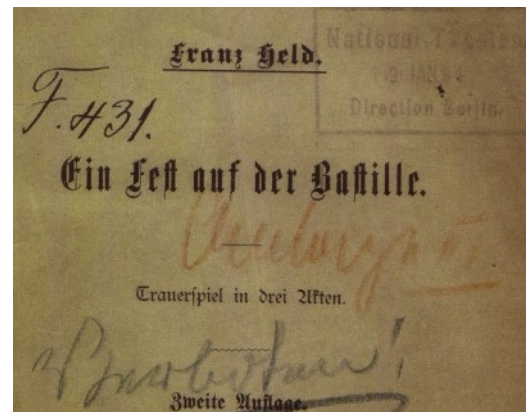 Franz Held.
National Theater
19 JAN 9
Direction Berlin.
F. 431.
Ein Fest auf der Bastille.
Trauerspiel in drei Akten.
Verboten!
Zweite Auflage.